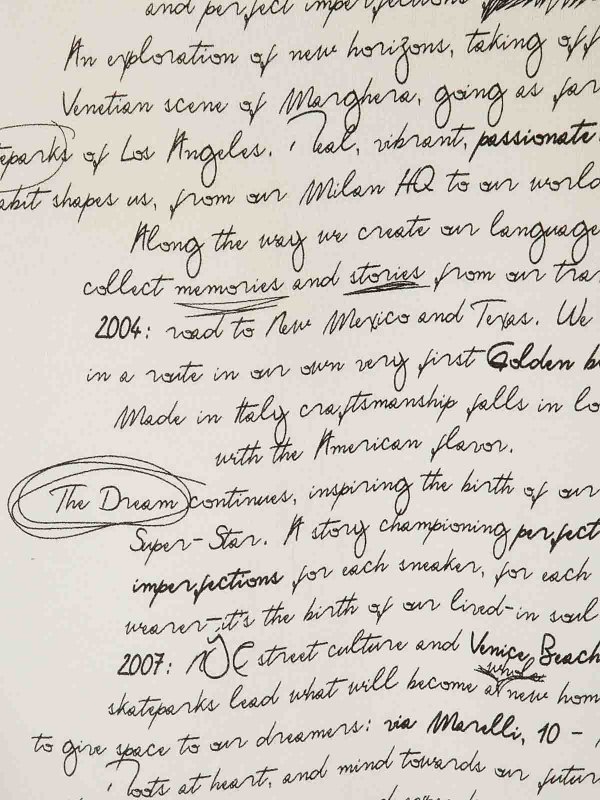 and perfect imperfections
An exploration of new horizons, taking off
Venetian scene of Marghera, going as far
teparks of Los Angeles. Real, vibrant, passionate.
abit shapes us, from our Milan HQ to our world
Along the way we create our language
collect memories and stories from our tra
2004: road to New Mexico and Texas. We
in a route in our own very first Golden b
Made in Italy craftsmanship falls in lo
with the American flavor.
The Dream continues, inspiring the birth of our
Super-Star. A story championing perfect
imperfections for each sneaker, for each
wearer-it's the birth of our lived-in soul
2007: NYC street culture and Venice Beach
whole
skateparks lead what will become a new hom
to give space to our dreamers: via Marelli, 10 -
Roots at heart, and mind towards our futur